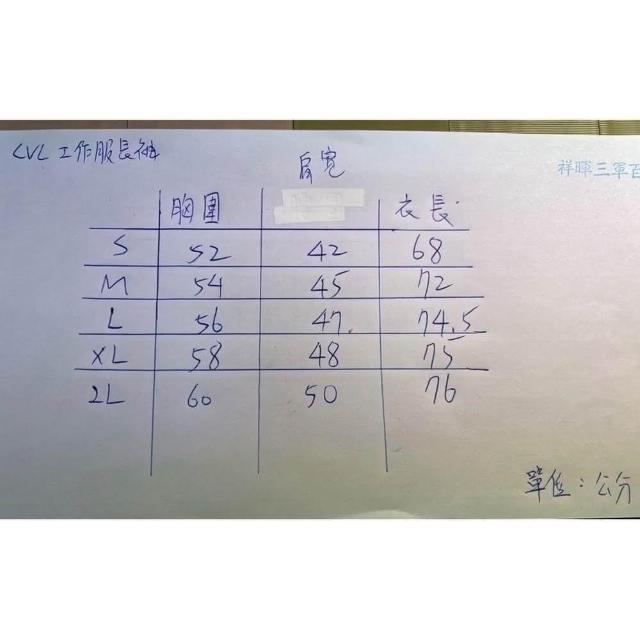 LVL 工作服長袖
肩寬
祥暉三軍百
胸圍 衣長
S 52 42 68
M 54 45 72
L 56 47. 74.5
XL 58 48 75
2L 60 50 76
單位：公分